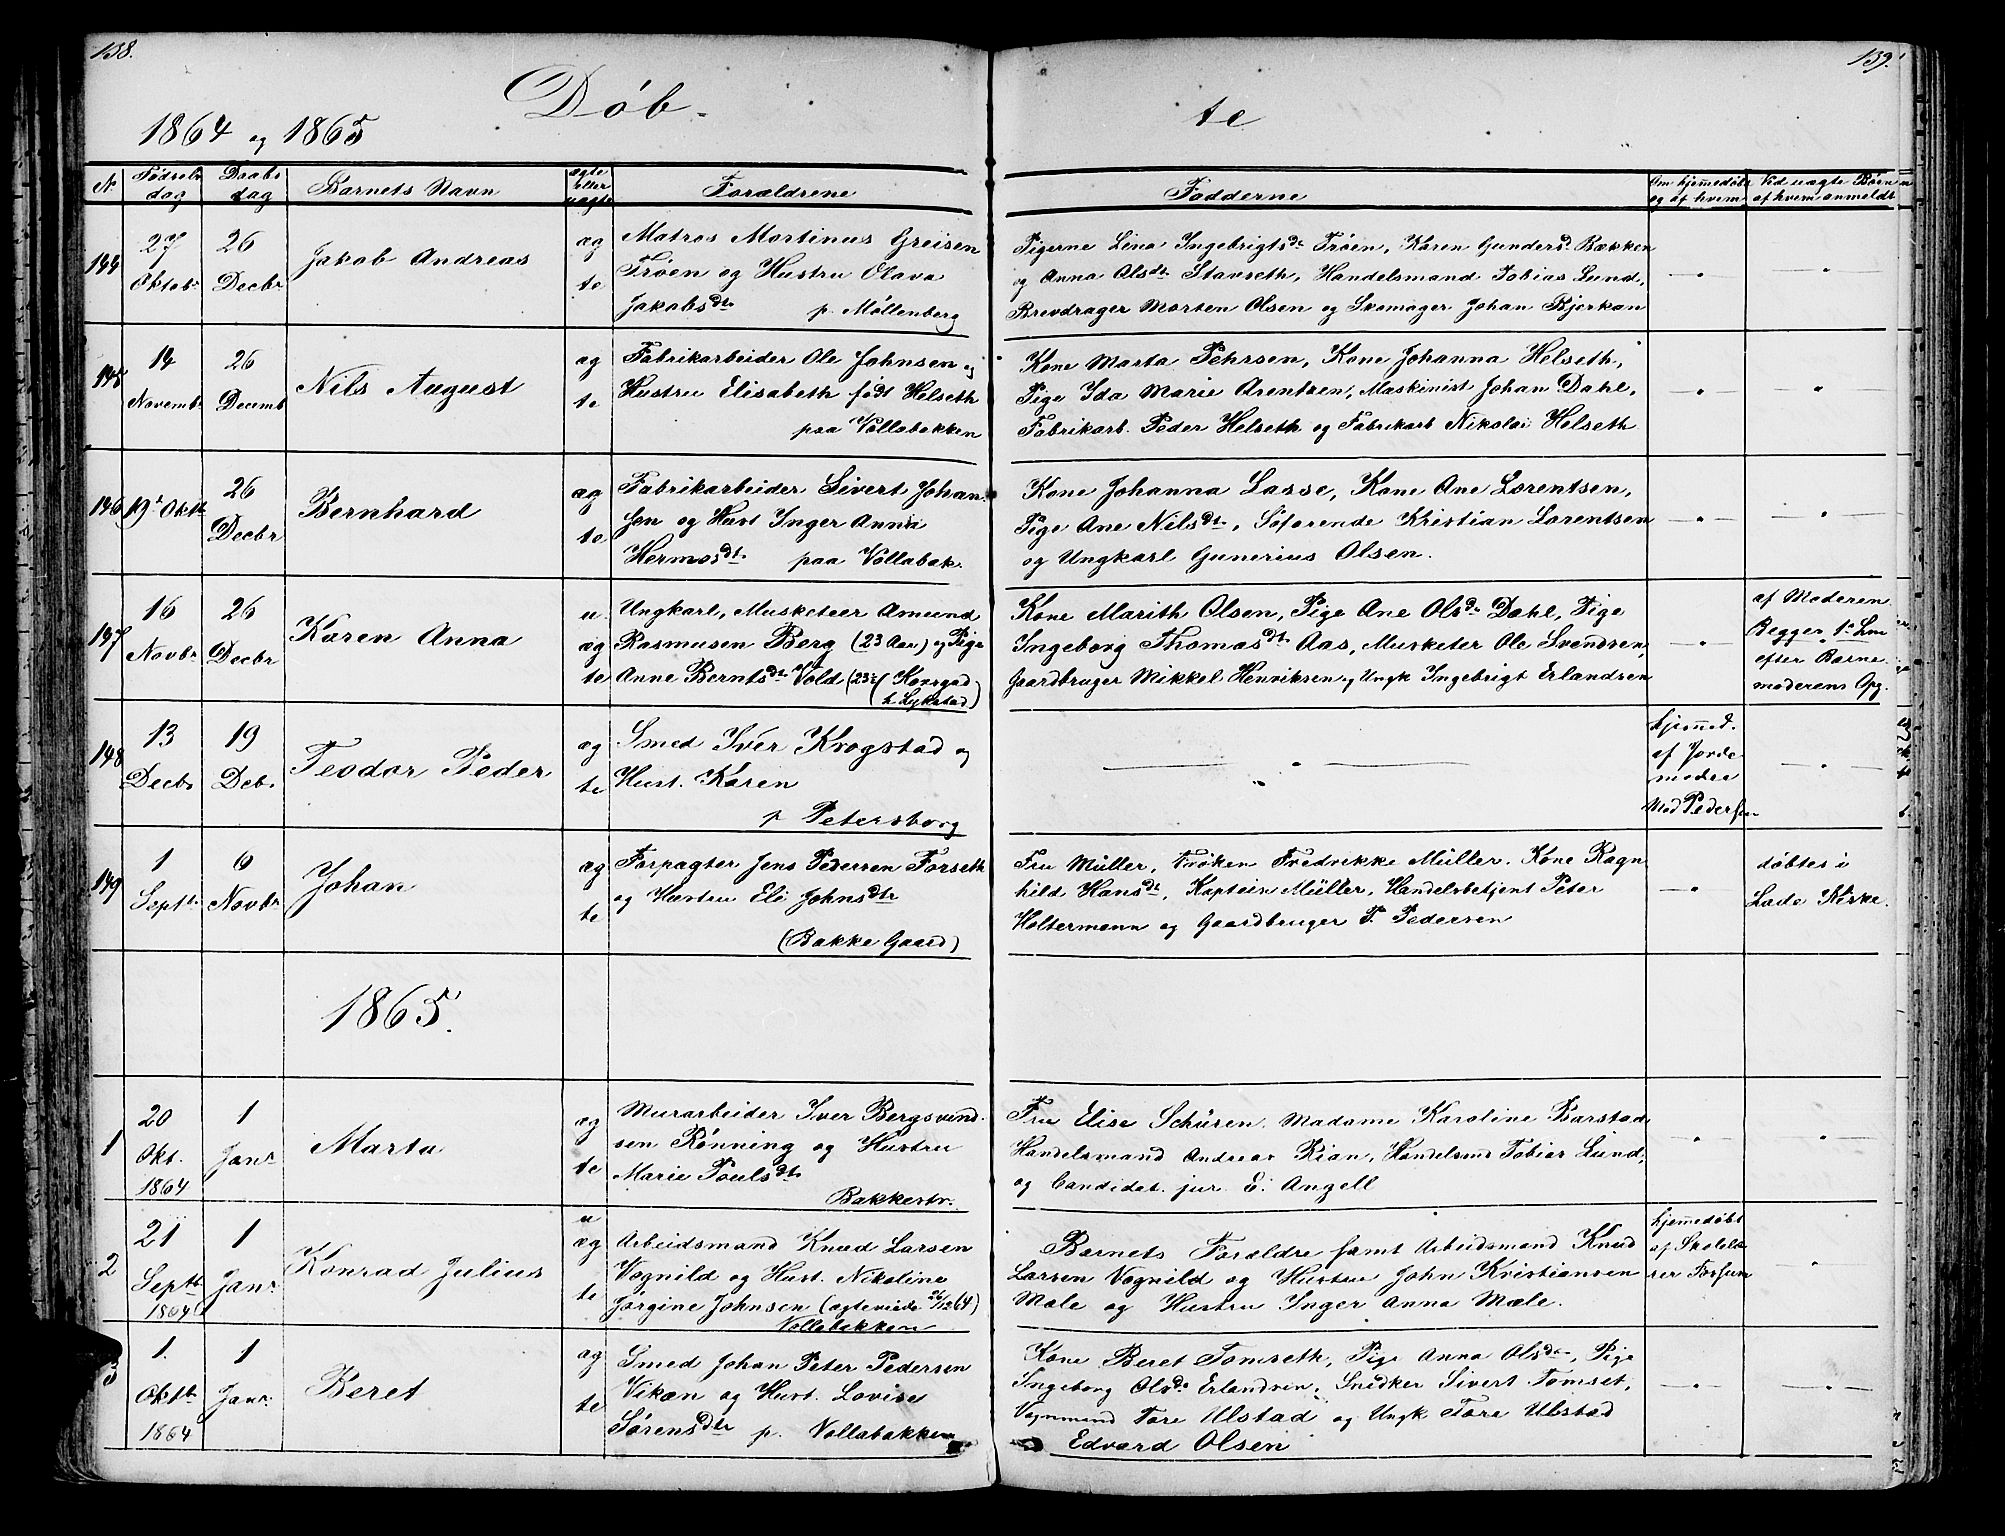 138.
139.
Döb-
te
1864 og 1865
N
Fødsels
dag
Daabs
dag
Barnets Navn
ægte
eller
uægte
Forældrene
Fadderne
Om hjemmedøbt
og af hvem
Ved uægte Børn
af hvem anmeldt
144
27
Oktobr
26
Decbr
Jakob Andreas
æg
te
Matros Martinus Greisen
Trøen og Hustru Olava
Jakobsdt p. Møllenberg
Pigerne Lina Ingebrigtsdt Trøen, Karen Gundersd. Bækken
og Anna Olsdt Stavseth, Handelsmand Tobias Lund,
Brevdrager Morten Olsen og Skomager Johan Bjerkan
145
14
Novembr
26
Decemb
Nils August
æg
te
Fabrikarbeider Ole Johnsen og
Hustru Elisabeth født Helseth
paa Vollabakken
Kone Marta Pehrsen, Kone Johanna Helseth,
Pige Ida Marie Arentsen, Maskinist Johan Dahl,
Fabrikarb. Peder Helseth og Fabrikarb Nikolai Helseth
146
19 Oktbr
26
Decbr
Bernhard
æg
te
Fabrikarbeider Sivert Johan-
sen og Hust Inger Anna
Hermosdt. paa Vollabak.
Kone Johanna Lasse, Kone Ane Lorentsen,
Pige Ane Nilsdt, Søfarende Kristian Lorentsen
og Ungkarl Gunerius Olsen.
147
16
Novbr
26
Decbr
Karen Anna
u
æg
te
Ungkarl, Musketeer Amund
Rasmusen Berg (23 Aar) og Pige
Anne Berntsdt Vold (23
Kone Marith Olsen, Pige Ane Olsd. Dahl, Pige
Ingeborg Thomasdt. Aas, Musketer Ole Svendsen,
Gaardbruger Mikkel Henriksen og Ungk Ingebrigt Erlandsen
af Moderen
Begges 1ste Lm
efter Barne
moderens Opg.
148
13
Decb.
19
Deb.
Teodor Peder
æg
te
Smed Iver Krogstad og
Hust. Karen
p Petersborg
hjemmed.
af Jorde
moder
Mad Pedersen
149
1
Septbr
6
Novbr
Johan
æg
te
Forpagter Jens Pedersen Forseth
og Hustru Eli Johnsdtr
(Bakke Gaard)
Fru Müller, Frøken Fredrikke Müller. Kone Ragn
hild Hansdt, Kaptein Müller, Handelsbetjent Peter
Holtermann og Gaardbruger P. Pedersen
døbtes i
Lade Kirke.
1865.
1
20
Okt.
1864
1
Janr
Marta
æg
te
Murarbeider Iver Bergsvend-
sen Rønning og Hustru
Marie Poulsdt.
Bakkestr.
Fru Elise Schüren, Madame Karoline Barstad
Handelsmand Andreas Rian, Handelsmd Tobias Lund,
og Candidat. jur. E. Angell
2
21
Septbr
1864
1
Janr
Konrad Julius
u
æg
te
Arbeidsmand Knud Larsen
Vognild og Hust. Nikoline
Jørgine Johnsen (ægteviede 26/12 64)
Vollabakken
Barnets Forældre samt Arbeidsmand Knud
Larsen Vognild og Hustru John Kristiansen
Mæle og Hustru Inger Anna Mæle.
hjemmedøbt
af Skolelæ
rer Forsum
3
1.
Oktbr
1864
1
Janr
Beret
æg
te
Smed Johan Peter Pedersen
Vikan og Hust. Lovise
Sørensdtr p. Vollabakken
Kone Beret Tomseth, Pige Anna Olsdtr, Pige
Ingeborg Olsd. Erlandsen, Snedker Sivert Tomset,
Vognmand Tore Ulstad og Ungk Tore Ulstad
Edvard Olsen